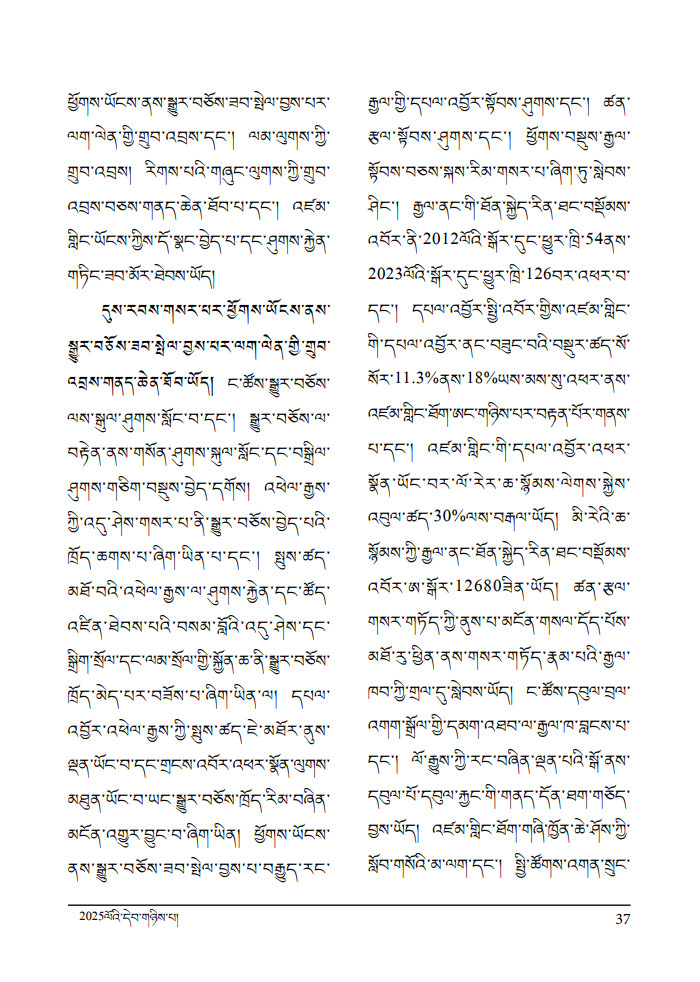 ཕྱོགས་ཡོངས་ནས་སྒྱུར་བཅོས་ཟབ་སྤེལ་བྱས་པར་
ལག་ལེན་གྱི་གྲུབ་འབྲས་དང་། ལམ་ལུགས་ཀྱི་
གྲུབ་འབྲས། རིགས་པའི་གཞུང་ལུགས་ཀྱི་གྲུབ་
འབྲས་བཅས་གནད་ཆེན་ཐོབ་པ་དང་། འཛམ་
གླིང་ཡོངས་ཀྱིས་དོ་སྣང་བྱེད་པ་དང་ཤུགས་རྐྱེན་
གཏིང་ཟབ་མོར་ཐེབས་ཡོད།
དུས་རབས་གསར་པར་ཕྱོགས་ཡོངས་ནས་
སྒྱུར་བཅོས་ཟབ་སྤེལ་བྱས་པར་ལག་ལེན་གྱི་གྲུབ་
འབྲས་གནད་ཆེན་ཐོབ་ཡོད། ང་ཚོས་སྒྱུར་བཅོས་
ལས་སྒུལ་ཤུགས་སློང་བ་དང་། སྒྱུར་བཅོས་ལ་
བརྟེན་ནས་གསོན་ཤུགས་སྐུལ་སློང་དང་བསྒྲིལ་
ཤུགས་གཅིག་བསྡུས་བྱེད་དགོས། འཕེལ་རྒྱས་
ཀྱི་འདུ་ཤེས་གསར་པ་ནི་སྒྱུར་བཅོས་བྱེད་པའི་
ཁྲོད་ཆགས་པ་ཞིག་ཡིན་པ་དང་། སྤུས་ཚད་
མཐོ་བའི་འཕེལ་རྒྱས་ལ་ཤུགས་རྐྱེན་དང་ཚོད་
འཛིན་ཐེབས་པའི་བསམ་བློའི་འདུ་ཤེས་དང་
སྒྲིག་སྲོལ་དང་ལམ་སྲོལ་གྱི་སྐྱོན་ཆ་ནི་སྒྱུར་བཅོས་
ཁྲོད་མེད་པར་བཟོས་པ་ཞིག་ཡིན་ལ། དཔལ་
འབྱོར་འཕེལ་རྒྱས་ཀྱི་སྤུས་ཚད་ཇེ་མཐོར་ནུས་
ལྡན་ཡོང་བ་དང་གྲངས་འབོར་འཕར་སྣོན་ལུགས་
མཐུན་ཡོང་བ་ཡང་སྒྱུར་བཅོས་ཁྲོད་རིམ་བཞིན་
མངོན་འགྱུར་བྱུང་བ་ཞིག་ཡིན། ཕྱོགས་ཡོངས་
ནས་སྒྱུར་བཅོས་ཟབ་སྤེལ་བྱས་པ་བརྒྱུད་རང་
རྒྱལ་གྱི་དཔལ་འབྱོར་སྟོབས་ཤུགས་དང་། ཚན་
རྩལ་སྟོབས་ཤུགས་དང་། ཕྱོགས་བསྡུས་རྒྱལ་
སྟོབས་བཅས་སྐས་རིམ་གསར་པ་ཞིག་ཏུ་སླེབས་
ཤིང་། རྒྱལ་ནང་གི་ཐོན་སྐྱེད་རིན་ཐང་བསྡོམས་
འབོར་ནི་2012ལོའི་སྒོར་དུང་ཕྱུར་ཁྲི་54ནས་
2023ལོའི་སྒོར་དུང་ཕྱུར་ཁྲི་126བར་འཕར་བ་
དང་། དཔལ་འབྱོར་སྤྱི་འབོར་གྱིས་འཛམ་གླིང་
གི་དཔལ་འབྱོར་ནང་བཟུང་བའི་བསྡུར་ཚད་སོ་
སོར་11.3%ནས་18%ཡས་མས་སུ་འཕར་ནས་
འཛམ་གླིང་ཐོག་ཨང་གཉིས་པར་བརྟན་པོར་གནས་
པ་དང་། འཛམ་གླིང་གི་དཔལ་འབྱོར་འཕར་
སྣོན་ཡོང་བར་ལོ་རེར་ཆ་སྙོམས་ལེགས་སྐྱེས་
འབུལ་ཚད་30%ལས་བརྒལ་ཡོད། མི་རེའི་ཆ་
སྙོམས་ཀྱི་རྒྱལ་ནང་ཐོན་སྐྱེད་རིན་ཐང་བསྡོམས་
འབོར་ཨ་སྒོར་12680ཟིན་ཡོད། ཚན་རྩལ་
གསར་གཏོད་ཀྱི་ནུས་པ་མངོན་གསལ་དོད་པོས་
མཐོ་རུ་ཕྱིན་ནས་གསར་གཏོད་རྣམ་པའི་རྒྱལ་
ཁབ་ཀྱི་གྲལ་དུ་སླེབས་ཡོད། ང་ཚོས་དབུལ་བྲལ་
འགག་སྒྲོལ་གྱི་དམག་འཐབ་ལ་རྒྱལ་ཁ་བླངས་པ་
དང་། ལོ་རྒྱུས་ཀྱི་རང་བཞིན་ལྡན་པའི་སྒོ་ནས་
དབུལ་པོ་དབུལ་རྐྱང་གི་གནད་དོན་ཐག་གཅོད་
བྱས་ཡོད། འཛམ་གླིང་ཐོག་གཞི་ཁྱོན་ཆེ་ཤོས་ཀྱི་
སློབ་གསོའི་མ་ལག་དང་། སྤྱི་ཚོགས་འགན་སྲུང་
2025ལོའི་དེབ་གཉིས་པ།
37